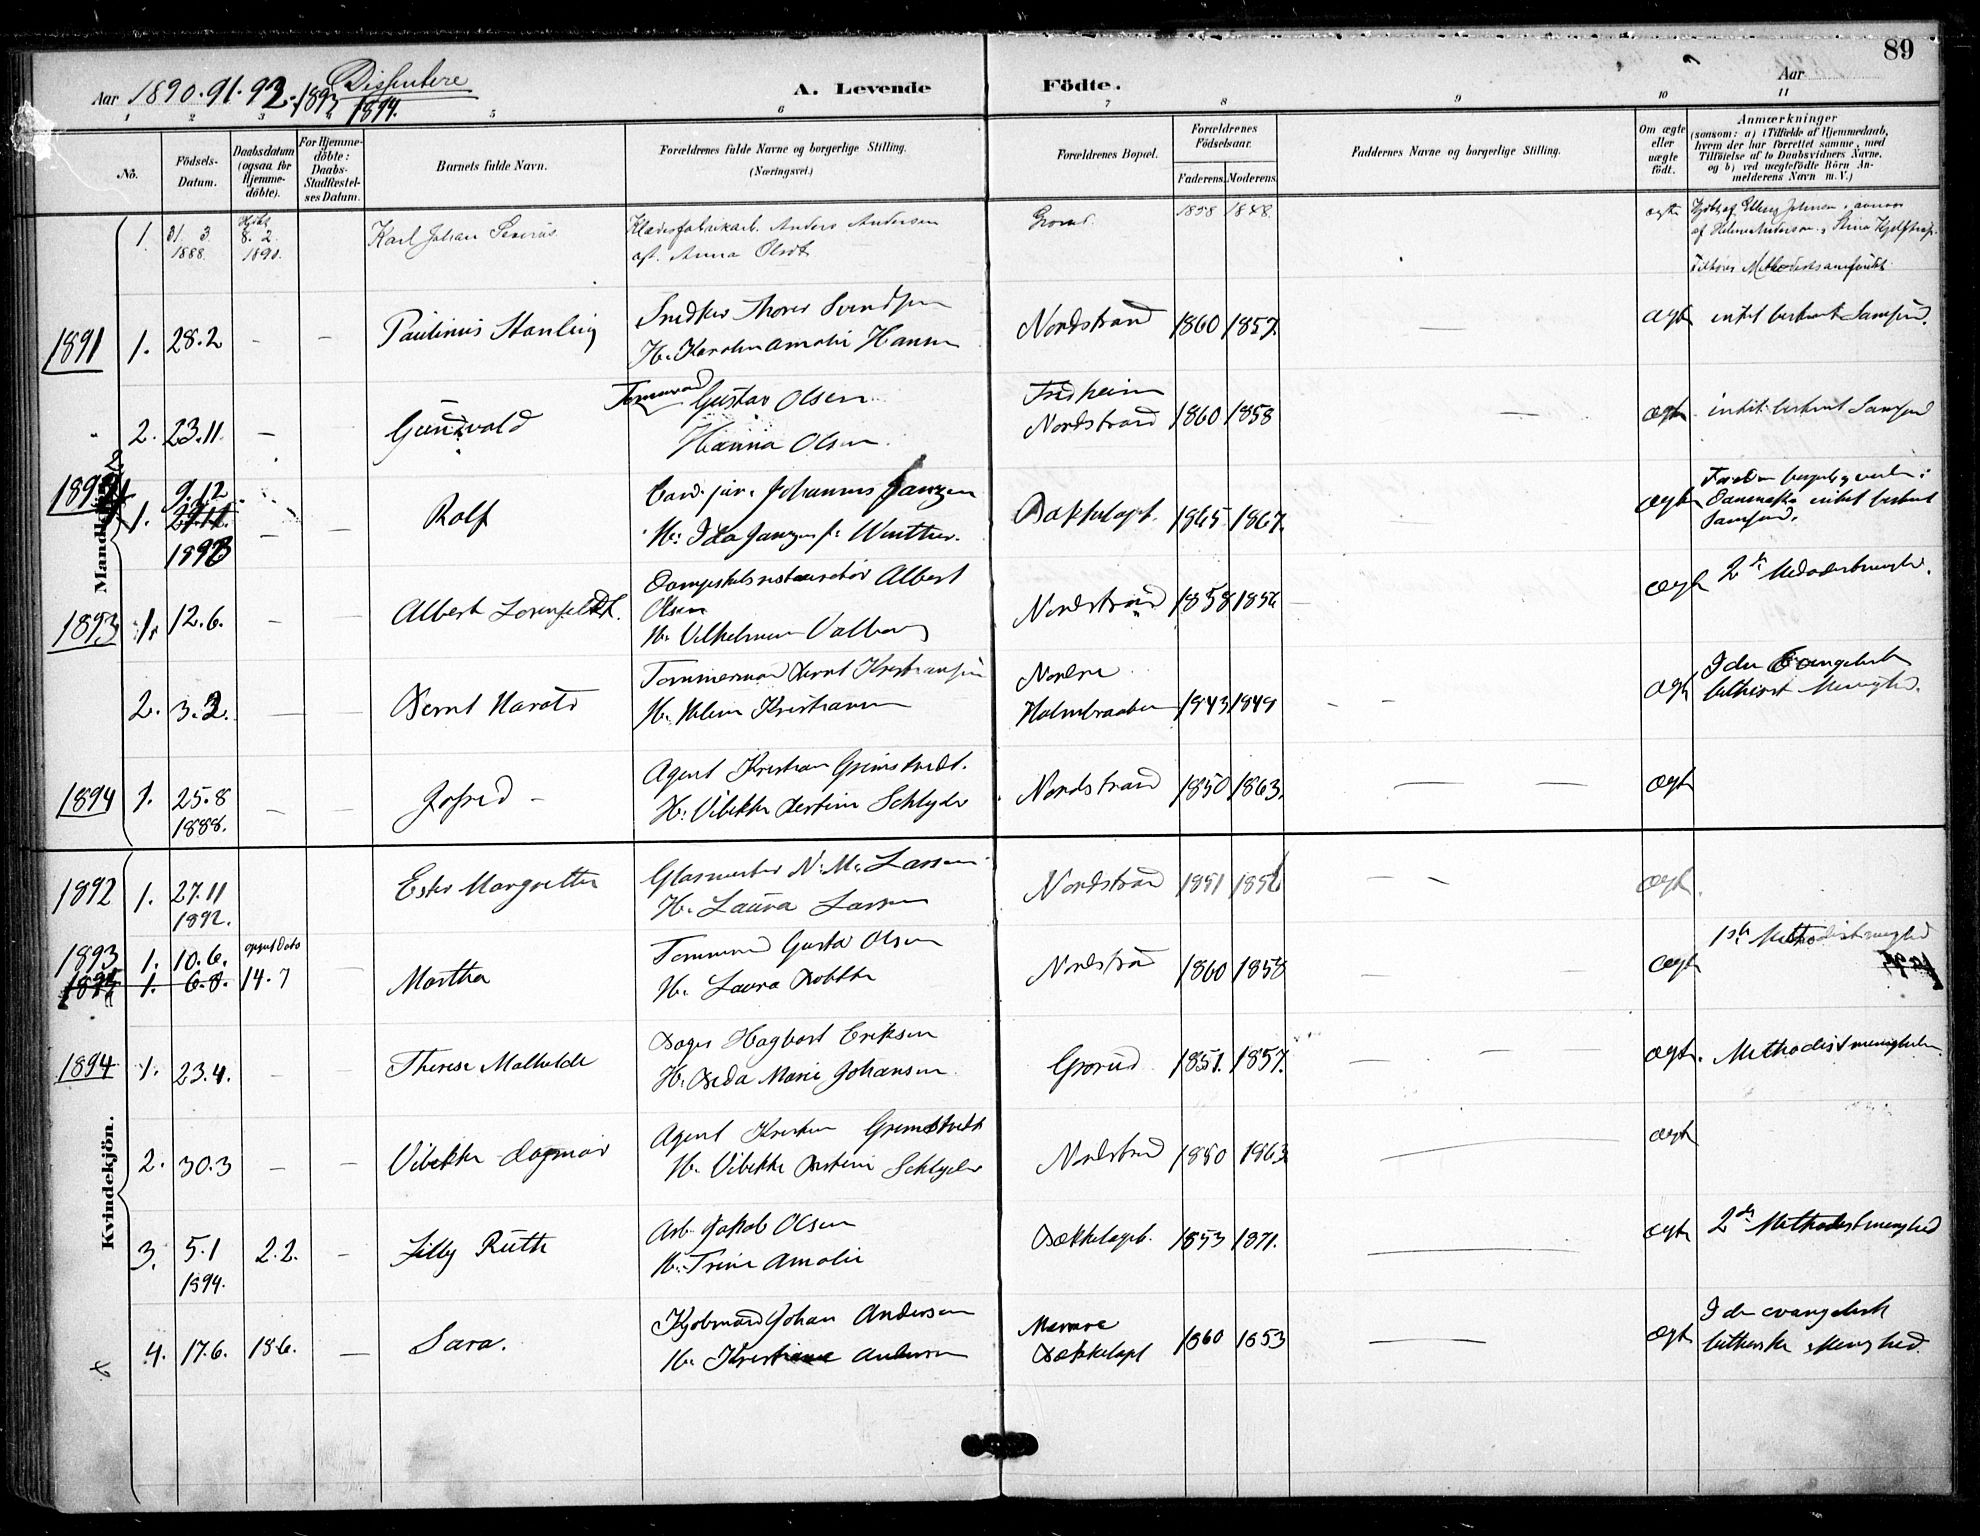 89
Aar 1890.91.92.1893 Disputere 1894.
A. Levende Födte.
Aar
1 2 3 4 5 6 7 8 9 10 11
No.
Födsels-
Datum.
Daabsdatum
(ogsaa for
Hjemme-
döbte).
For Hjemme-
döbte:
Daabs-
Stadfæstel-
ses Datum.
Barnets fulde Navn.
Forældrenes fulde Navne og borgerlige Stilling.
(Næringsvei.)
Forældrenes Bopæl.
Forældrenes
Födselsaar.
Faderens. Moderens.
Faddernes Navne og borgerlige Stilling.
Om ægte
eller
uægte
födt.
Anmærkninger
(saasom: a) i Tilfælde af Hjemmedaab,
hvem der har forrettet samme, med
Tilföielse af to Daabsvidners Navne,
og b) ved uægtefödte Börn An-
melderens Navn m. V.)
Mandkjön.
1. 31 3 1888. 8. 2 1890. Karl Johan Severius
Klædesfabrikarb. Anders Andersen
Anna Olsdt
Grorud. 1858 1848 ægte
Tilhører Methodistsamfundet
1891 1. 28.2 - - Paulinus Stanley
Snedker Thorer Svendsen
H. Karoline Amalie Hansen
Nordstrand 1860 1857. — ægte intet bestemt Samfund.
2. 23.11. - Gundvald
Tømmermd Gustav Olsen
Hanna Olsen.
Fredheim
Nordstrand 1860 1858 — ægte intet bestemt Samfund
1. 9.12 27.11. 1892 - - Rolf
Cand. jur. Johannes Janzen
H: Ida Janzen f: Winther.
Bækkelaget. 1865 1867. ægte
Danmark, intet bestemt
Samfund.
1893 1. 12.6. - - Albert Lorenfeldt.
Dampskibsrestauratør Albert
Olsen
H. Vilhelmine Valborg
Nordstrand 1858 1856 — ægte 2den Metodistmenighed.
2. 3.2. - - Bernt Harald
Tømmermand Bernt Kristiansen
H. Helene Kristiansen
Nordre
Holmbraaten 1843 1849 - - ægte
I den Evangelisk
luthersk Menighed.
1894 1. 25.8 1888. - - Jofred -
Agent Kristian Grimstvedt.
H: Vibekke Kestine Schlyder
Nordstrand 1850 1863. — — ægte
Kvindekjön.
1892 1. 27.11 1892. Ester Margrethe
Glasmester N. M. Larsen
H. Laura Larsen
Nordstrand 1851 1856 - - ægte.
1893 1. 10.6. opgivet Dato
1. 6.8. 14.7 Martha
Tømmermd Gustav Olsen
H. Laura
Nordstrand 1860 1858 ægte 1ste Methodistmenighed
1894 1. 23.4. - Therese Mathilde
Bager Hagbart Eriksen
H. Beda Marie Johansen
Grorud. 1851. 1857. — — ægte. Methodistmenigheden.
2. 30.3 - - Vibekke Dagmar
Agent Kristian Grimstvedt
H. Vibekke Kestine Schlyder
Nordstrand 1850 1863 — ægte
3. 5.1 1894. 2.2. - Lilly Ruth
Arb. Jakob Olsen
H. Trine Amalie
Bækkelaget. 1853 1871. — ægte 2den Methodistmenighed
4. 17.6. 18.6. — Sara.
Kjøbmand Johan Andersen
H. Kristiane Andersen
Bækkelaget 1860 1853 — ægte
I den evangelisk
lutherske Menighed.